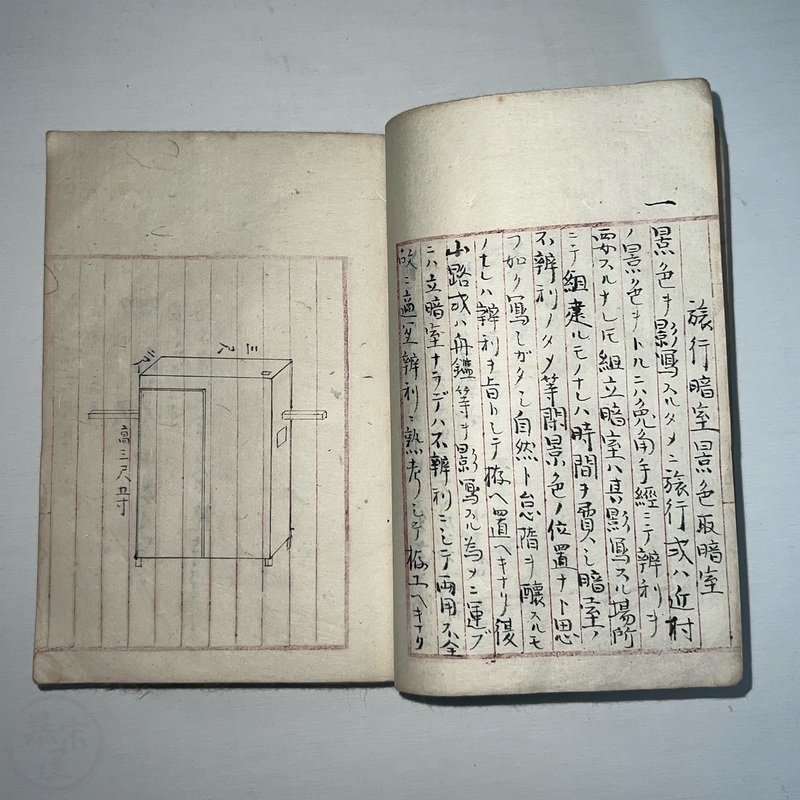 一
旅行暗室景色取暗室
景色ヲ影寫スルタメニ旅行或ハ近村
ノ景色ヲトルニハ兔角手經ニテ辨利ヲ
要スルナレ𪜈組立暗室ハ其影寫スル場所
ニテ組建ルモノナレハ時間ヲ費ヘシ暗室ノ
不辨利ノタメ等閑景色ノ位置ナト思
フ如ク寫シガタシ自然ト怠惰ヲ釀スルモ
ノナレハ辨利ヲ旨トシテ拵ヘ置ヘキナリ復
山路或ハ舟鑑等ヲ影寫スル為メニ運ブ
ニハ立暗室ナラデハ不辨利ニシテ両用不全
故ニ運辨利ニ熟考シテ拵エヘキナリ
三尺
高三尺五寸